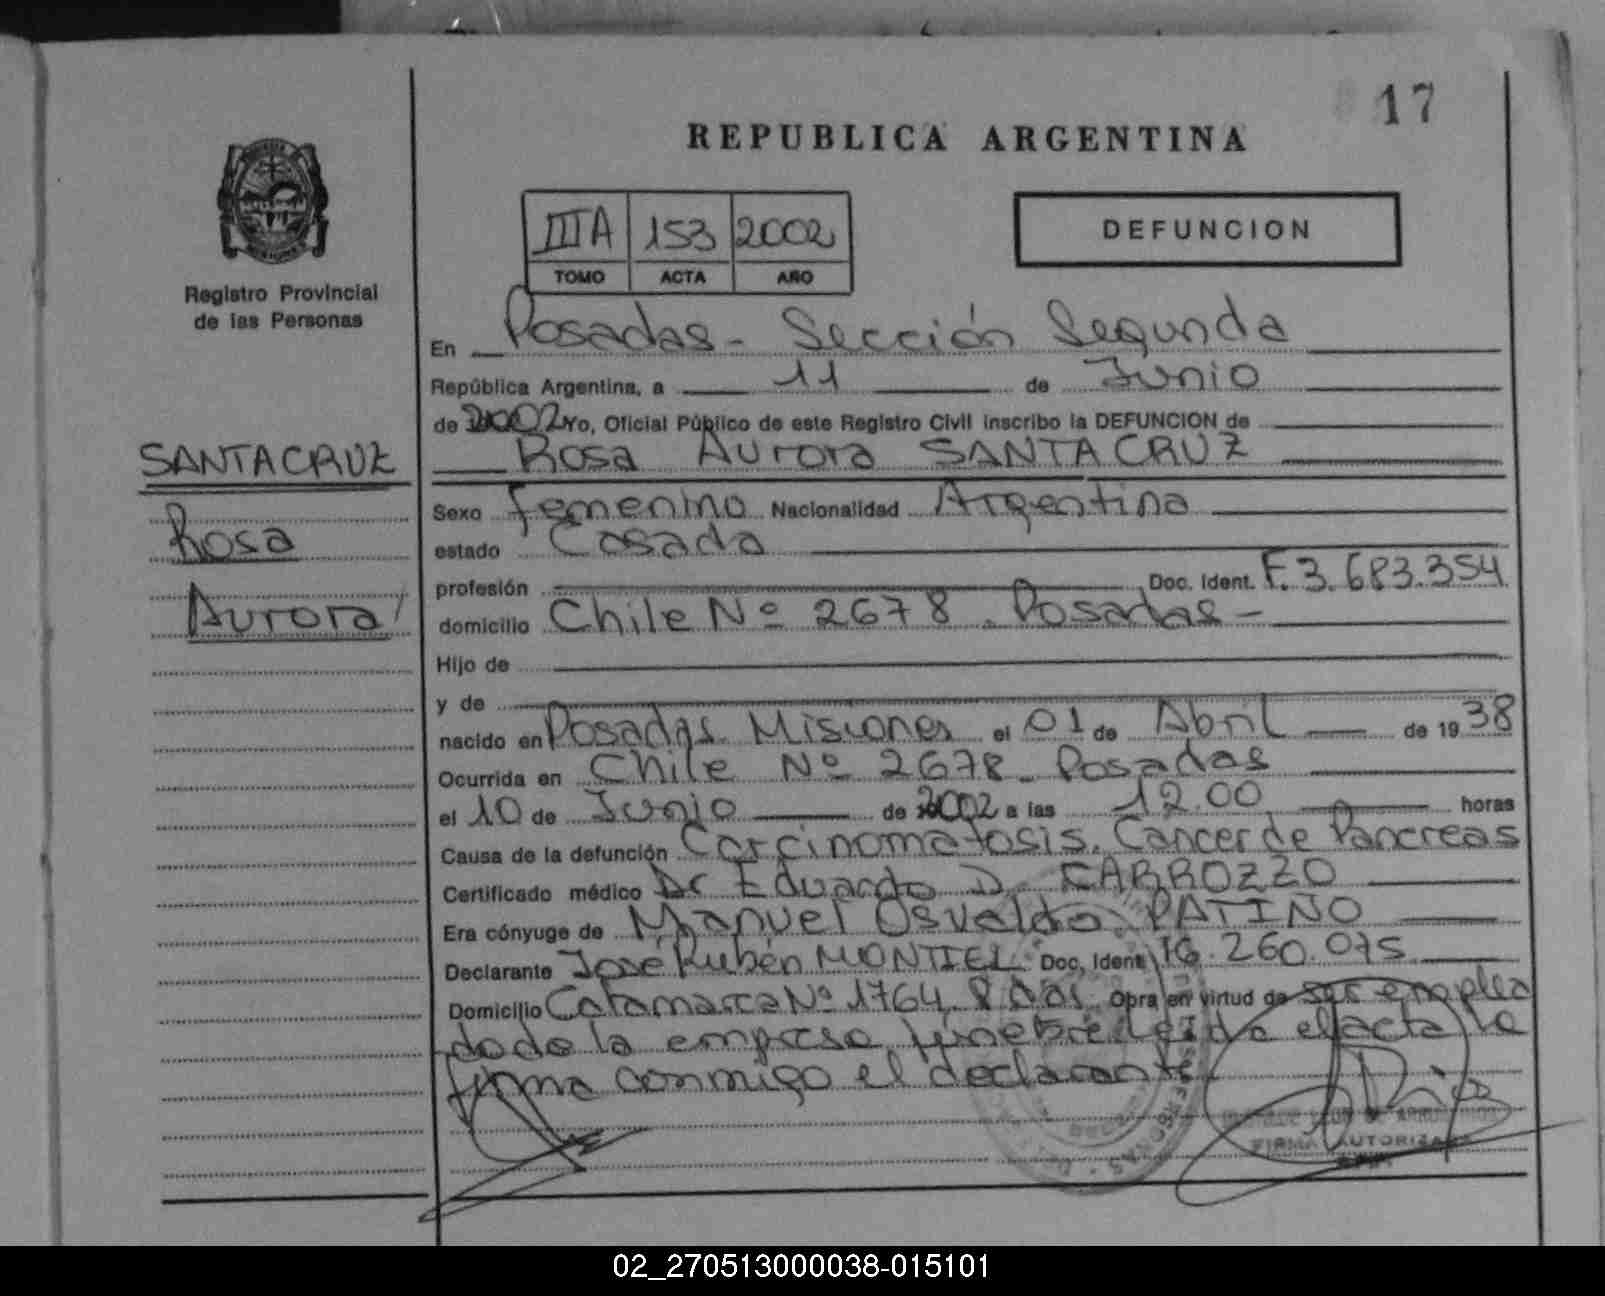 17
REPUBLICA ARGENTINA
IIIA 153 2002
TOMO ACTA AÑO
DEFUNCION
Registro Provincial
de las Personas
SANTACRUZ
Rosa
Aurora
En Posadas - Sección Segunda
República Argentina, a 11 de Junio
de 2002 Yo, Oficial Público de este Registro Civil inscribo la DEFUNCION de
Rosa Aurora SANTACRUZ
Sexo femenino Nacionalidad Argentina
estado Casada
profesión Doc. Ident. F. 3.683.354
domicilio Chile Nº 2678 - Posadas -
Hijo de
y de
nacido en Posadas Misiones el 01 de Abril de 1938
Ocurrida en Chile Nº 2678 - Posadas
el 10 de Junio de 2002 a las 12.00 horas
Causa de la defunción Carcinomatosis. Cancer de Pancreas
Certificado médico Dr Eduardo D. CARROZZO
Era cónyuge de Manuel Osvaldo PATIÑO
Declarante José Rubén MONTIEL Doc. Ident. 16.260.075
Domicilio Catamarca Nº 1764 Obra en virtud de ser emplea
do de la empresa fúnebre Leída el acta la
firma conmigo el declarante
FIRMA AUTORIZADA
02_270513000038-015101